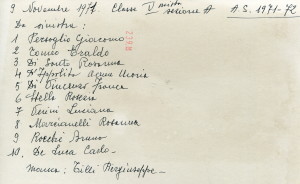 9 Novembre 1971 Classe V mista
sezione A A.S. 1971-72
Da sinistra:
1 Persoglio Giacomo
2 Comio Eraldo
3 Di Santo Rosanna
4 D'Ippolito Anna Maria
5 Di Vincenzo Franca
6 Mello Rosaria
7 Perini Luciana
8 Marcianelli Rosanna
9 Rocchi Bruno
10. De Luca Carlo.
Manca: Tilli Piergiuseppe.